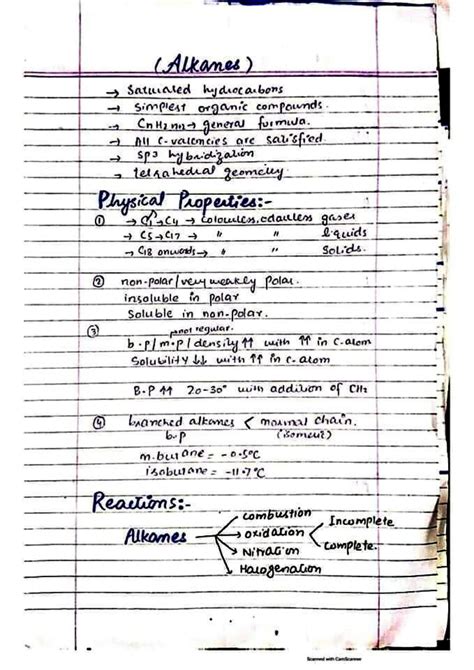 (Alkanes)
→ Saturated hydrocarbons
→ Simplest organic compounds.
→ CnH2n+2 → general formula.
→ All C-valencies are satisfied.
→ SP3 hybridization
→ tetrahedral geometry
Physical Properties:-
① → C1→C4 → colourless, odourless gases
→ C5→C17 → " " liquids
→ C18 onwards → " " Solids.
② non-polar/very weakly polar.
insoluble in polar
Soluble in non-polar.
③ not regular.
b.p/m.p/density ↑↑ with ↑↑ in C-atom
Solubility ↓↓ with ↑↑ in C-atom
B.P ↑↑ 20-30° with addition of CH2
④ branched alkanes < normal chain.
b.p (isomeric)
n.butane = -0.5°C
isobutane = -11.7°C
Reactions:-
Alkanes → combustion
→ oxidation < Incomplete
Complete.
→ Nitration
→ Halogenation
Scanned with CamScanner